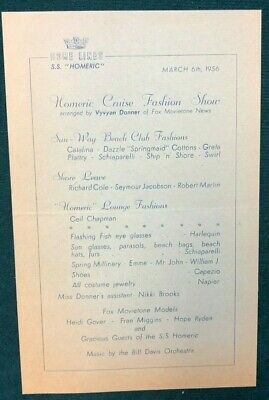 HOME LINES
S.S. "HOMERIC"
MARCH 6th, 1956
Homeric Cruise Fashion Show
arranged by Vyvyan Donner of Fox Movietone News
Sun - Way Beach Club Fashions
Catalina - Dazzle "Springmaid" Cottons - Greta
Plattry - Schiaparelli - Ship 'n' Shore - Swirl
Shore Leave
Richard Cole - Seymour Jacobson - Robert Martin
"Homeric" Lounge Fashions
Ceil Chapman
* * * * * * * * *
Flashing Fish eye glasses - Harlequin
Sun glasses, parasols, beach bags, beach
hats, furs - Schiaparelli
Spring Millinery - Emme - Mr John - William J
Shoes - Capezio
All costume jewelry - Napier
Miss Donner's assistant Nikki Brooks
Fox Movietone Models
Heidi Gover - Fran Miggins - Hope Ryden
and
Gracious Guests of the S.S. Homeric
Music by the Bill Davis Orchestra